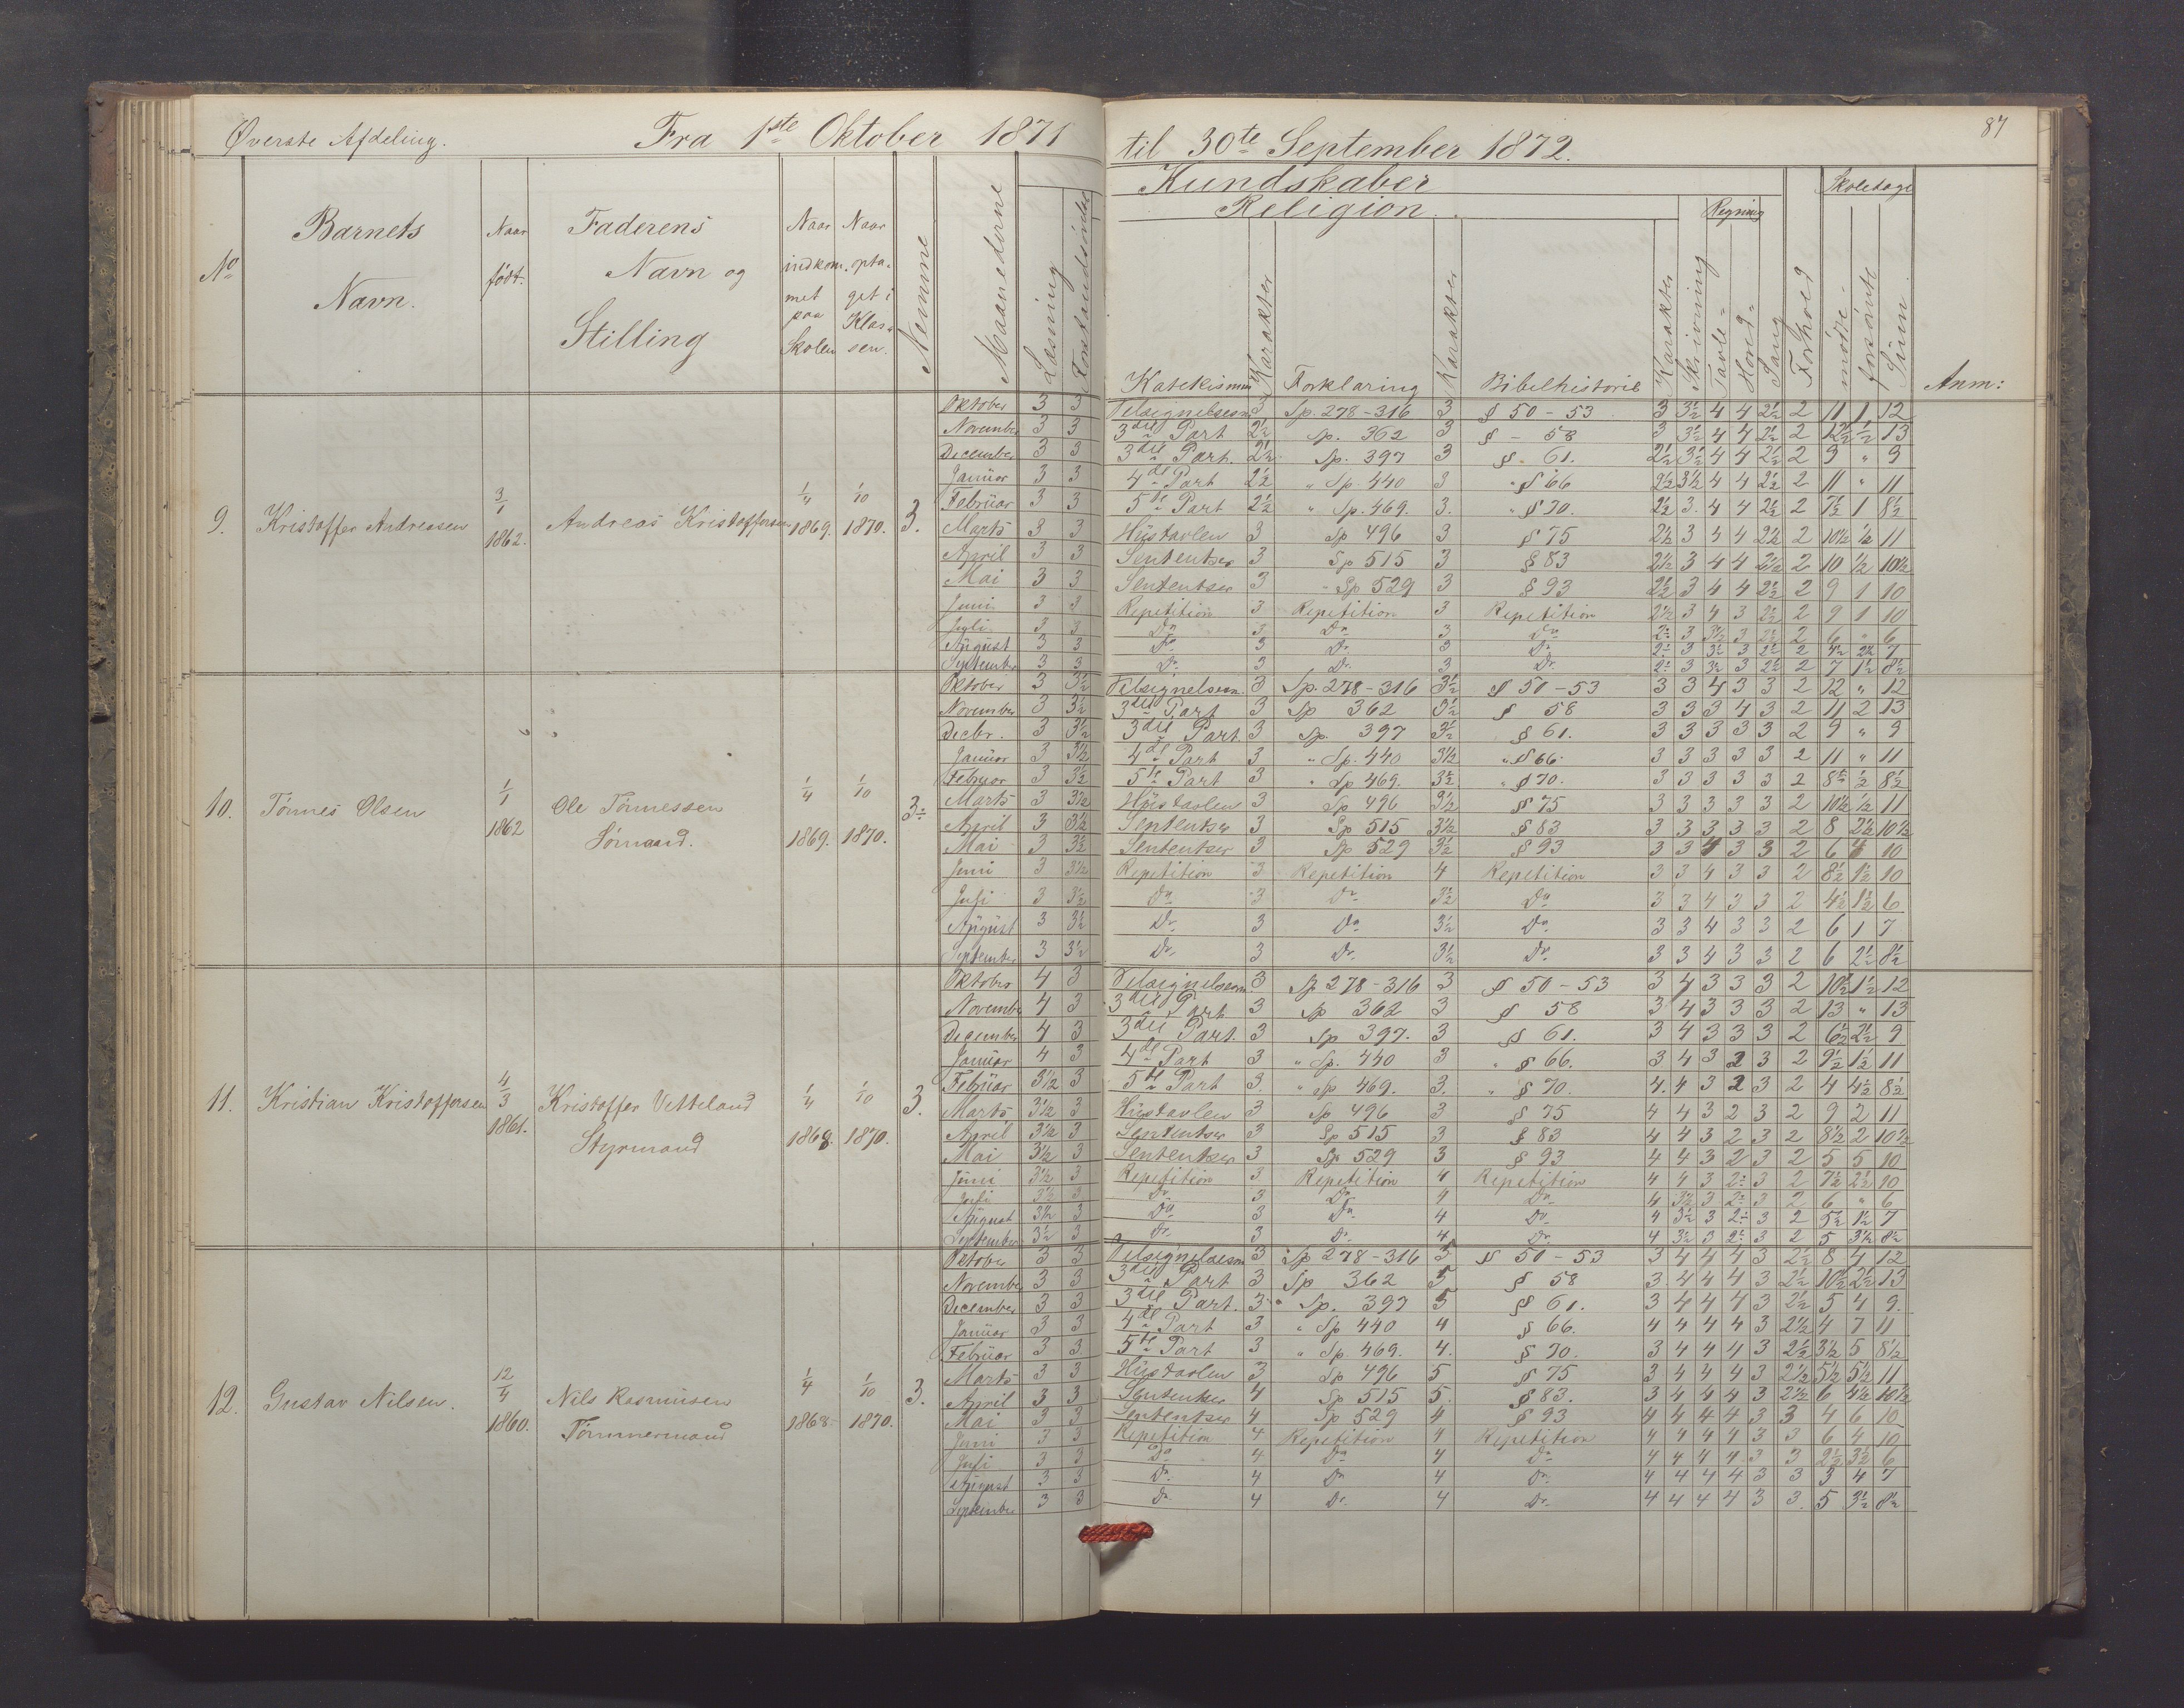 Øverste Afdeling.
Fra 1ste Oktober 1871 til 30te September 1872.
87
No
Barnets Navn.
Naar født.
Faderens Navn og Stilling
Naar indkommet paa Skolen
Naar optaget i Klassen.
Nemme
Maanederne
Læsning
Forstandsøvelse
Kundskaber
Religion.
Katekismus
Karakter
Forklaring
Karakter
Bibelhistorie
Karakter
Skrivning
Regning
Tavle-
Hoved-
Sang
Forhold
Skoledage
mødte
forsømte
Summ
Anm:
9. Kristoffer Andreasen 3/1 1862. Andreas Kristoffersen 1/4 1869. 1/10 1870. 3.
Oktober 3 3 Velsignelsesn 3 Sp. 278-316 3 § 50-53 3 3½ 4 4 2½ 2 11 1 12
November 3 3 3die Part 2½ Sp. 362 3 § - 58 3 3½ 4 4 2½ 2 12½ ½ 13
December 3 3 3die Part. 2½ Sp. 397 3 § 61. 2½ 3½ 4 4 2½ 2 9 " 9
Januar 3 3 4de Part 2½ " Sp. 440 3 " § 66 2½ 3½ 4 4 2½ 2 11 " 11
Februar 3 3 5te Part 2½ " Sp. 469. 3. " § 70. 2½ 3. 4 4 2½ 2 7½ 1 8½
Marts 3 3 Hustavlen 3 Sp 496 3 § 75 2½ 3 4 4 2½ 2 10½ ½ 11
April 3 3 Sententser 3 Sp 515 3 § 83 2½ 3 4 4 2½ 2 10 ½ 10½
Mai 3 3 Sententser 3 - Sp 529 3 § 93 2½ 3 4 4 2½ 2 9 1 10
Juni 3 3 Repetition 3 Repetition 3 Repetition 2½ 3 4 3 2½ 2 9 1 10
Juli 3 3 Do 3 Do 3 Do 2÷ 3 3½ 3 2½ 2 6 " 6
August 3 3 Do 3 Do 3 Do 2÷ 3 3½ 3 2½ 2 4½ 2½ 7
September 3 3 Do 3 Do 3 Do 2÷ 3 3½ 3 2½ 2 7 1½ 8½
10. Tönnes Olsen 1/1 1862 Ole Tönnessen Sömand. 1/4 1869. 1/10 1870. 3÷
Oktober 3 3½ Velsignelsesn. 3 Sp. 278-316 3½ § 50-53 3 3 4 3 3 2 12 " 12
November 3 3½ 3die Part 3 Sp 362 3½ § 58 3 3 3 4 3 2 11 2 13
Decbr. 3 3½ 3die Part. 3 Sp. 397 3½ § 61. 3 3 3 3 3 2 9 " 9
Januar 3 3½ 4de Part 3 " Sp. 440 3½ " § 66. 3 3 3 3 3 2 11 " 11
Februar 3 3½ 5te Part 3 " Sp 469. 3½ " § 70. 3 3 3 3 3 2 8 ½ 8½
Marts 3 3½ Hustavlen 3 Sp 496 3½ § 75 3 3 3 3 3 2 10½ ½ 11
April 3 3½ Sententser 3 Sp 515 3½ § 83 3 3 3 3 3 2 8 2½ 10½
Mai 3 3½ Sententser 3 Sp 529 3½ § 93 3 3 4 3 3 2 6 4 10
Juni 3 3½ Repetition 3 Repetition 4 Repetition 3 3 4 3 3 2 8½ 1½ 10
Juli 3 3½ Do 3 Do 3½ Do 3 3 4 3 3 2 4½ 1½ 6
August 3 3½ Do 3 Do 3½ Do 3 3 4 3 3 2 6 1 7
September 3 3½ Do 3 Do 3½ Do 3 3 4 3 3 2 6 2½ 8½
11. Kristian Kristoffersen 4/3 1861. Kristoffer Vetteland Styrmand 1/4 1868. 1/10 1870. 3.
Oktober 4 3 Velsignelsesn. 3 Sp 278-316 3 § 50-53 3 4 3 3 3 2 10½ 1½ 12
November 4 3 3die Part 3 Sp 362 3 § 58 3 4 3 3 3 2 13 " 13
December 4 3 3die Part. 3 Sp 397. 3 § 61. 3 4 3 3 3 2 6½ 2½ 9
Januar 4 3 4de Part 3 " Sp. 440 3 " § 66. 3 4 3 2 3 2 9½ 1½ 11
Februar 3½ 3 5te Part 3. " Sp 469. 3. " § 70. 4. 4 3 2 3 2 4 4½ 8½
Marts 3½ 3 Hustavlen 3 Sp 496 3 § 75 4 4 3 2 3 2 9 2 11
April 3½ 3 Sententser 3 Sp 515 3 § 83 4 4 3 2 3 2 8½ 2 10½
Mai 3½ 3 Sententser 3 Sp 529 3 § 93 4 4 3 2 3 2 5 5 10
Juni 3½ 3 Repetition 3 Repetition 4 Repetition 4 4 3 2÷ 3 2 7½ 2½ 10
Juli 3½ 3 Do 3 Do 4 Do 4 3½ 3 2÷ 3 2 6 " 6
August 3½ 3 Do 3 Do 4 Do 4 3½ 3 2÷ 3 2 5½ 1½ 7
September 3½ 3 Do 3 Do 4 Do 4 3½ 3 2÷ 3 2 5 3½ 8½
12. Gustav Nilsen. 12/4 1860. Nils Rasmusen Tömmermand 1/4 1868. 1/10 1870. 3.
Oktober 3 3 Velsignelsesn 3 Sp 278-316 5 § 50-53 3 4 4 4 3 2½ 8 4 12
November 3 3 3die Part 3 Sp 362 5 § 58 3 4 4 4 3 2½ 10½ 2½ 13
December 3 3 3die Part. 3 " Sp. 397 5 § 61. 3 4 4 4 3 2½ 5 4 9.
Januar 3 3 4de Part 3 " Sp 440 4 § 66. 4 4 4 4 3 2½ 4 7 11
Februar 3 3 5te Part 3 " Sp. 469. 4. § 70. 3 4 4 4 3 2½ 3½ 5 8½
Marts 3 3 Hustavlen 3 Sp 496 5 § 75 3 4 4 4 3 2½ 5½ 5½ 11
April 3 3 Sententser 4 Sp 515 5. § 83. 3 4 4 4 3 2½ 6 4½ 10½
Mai 3 3 Sententser 4 Sp 529 4 § 93 4 4 4 4 3 3 4 6 10
Juni 3 3 Repetition 4 Repetition 4 Repetition 4 4 4 4 3 3 6 4 10
Juli 3 3 Do 4 Do 4 Do 4 4 4 4 3 3 2½ 3½ 6
August 3 3 Do 4 Do 4 Do 4 4 4 4 3 3 3 4 7
September 3 3 Do 4 Do 4 Do 4 4 4 4 3 3. 5 3½ 8½